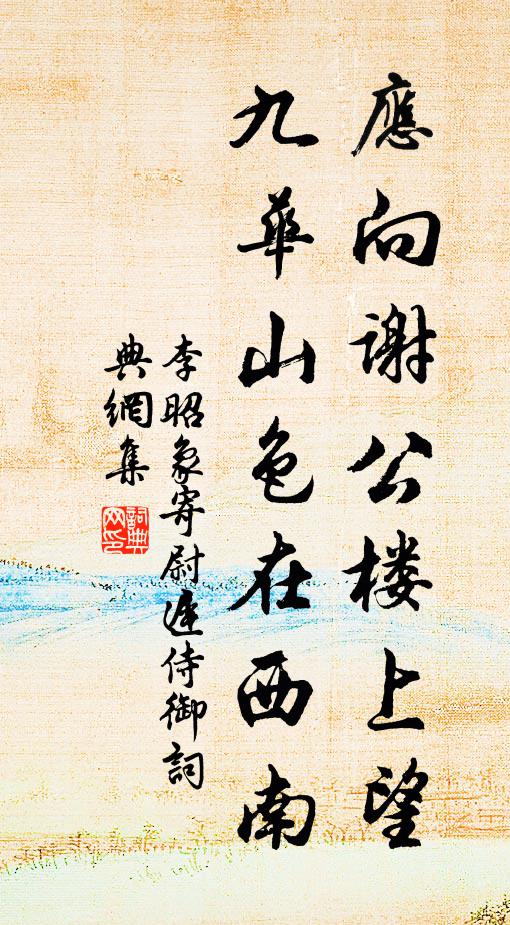 應向謝公楼上望
九華山色在西南
李昭象寄尉遲侍御詞
典網集
詞典
网印